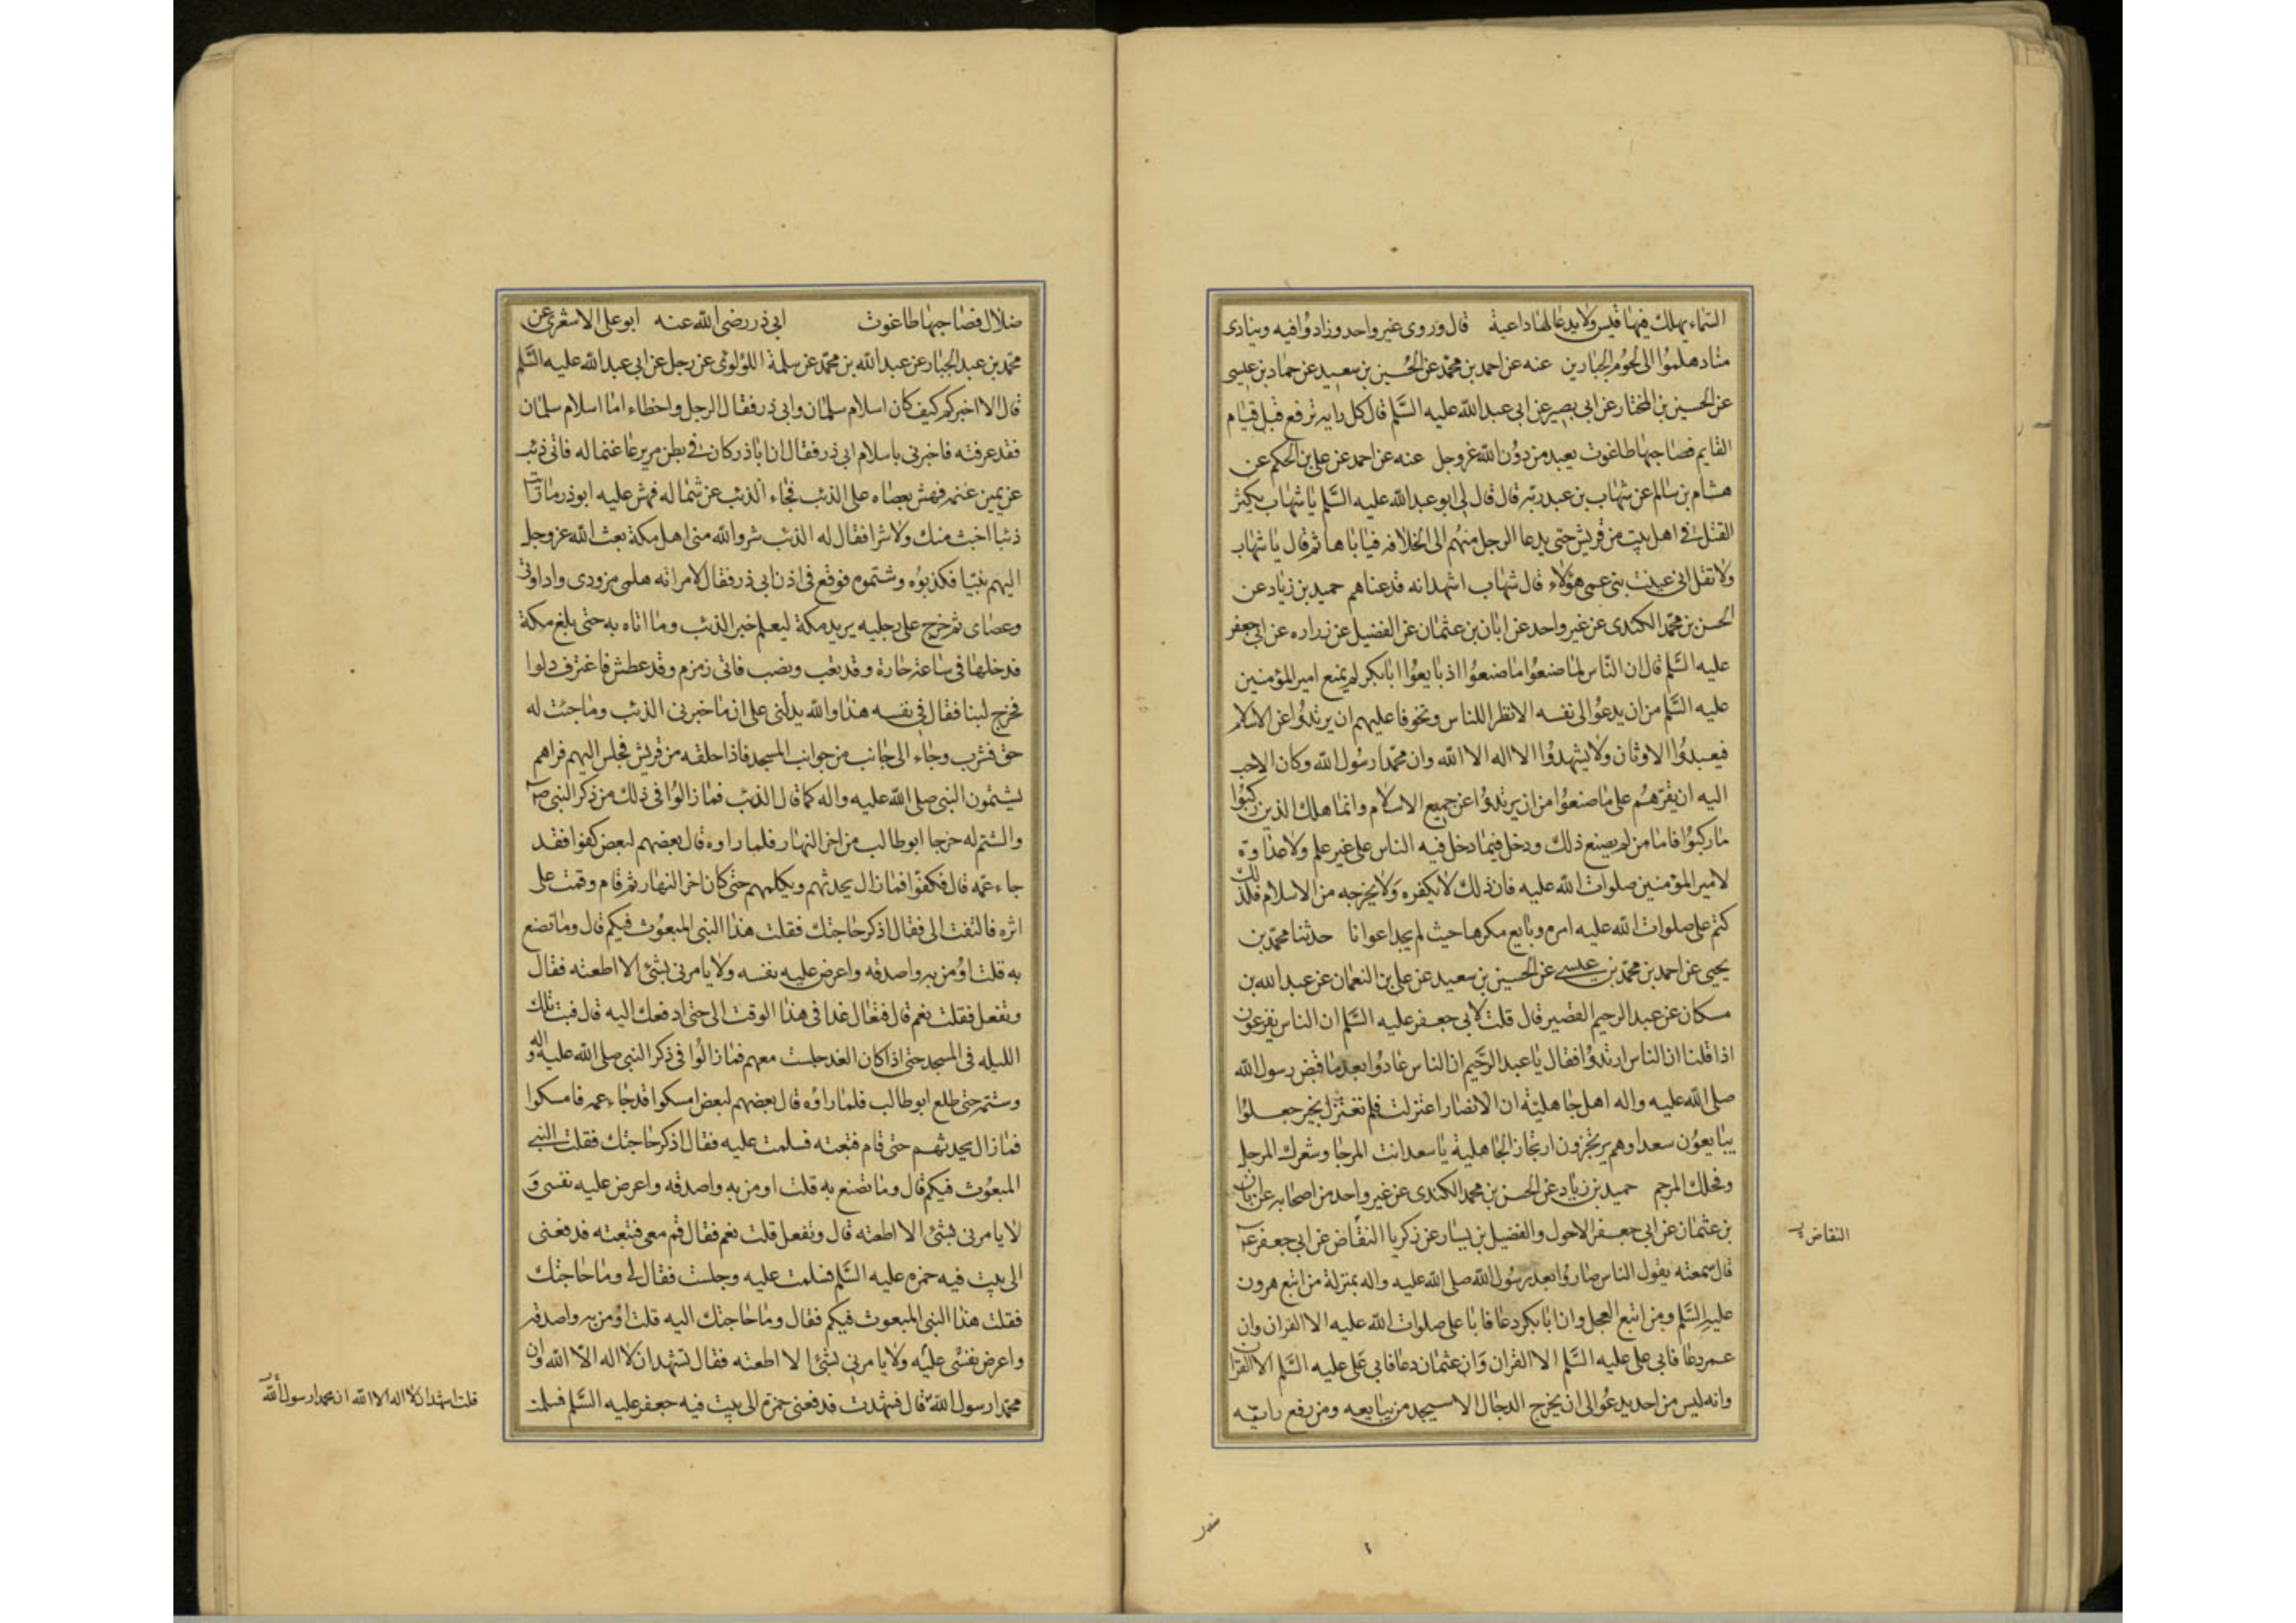 السماء يهلك فيها قيس ولا يدعا لها داعية قال وروى غير واحد وزادوا فيه وينادى
مناد هلموا الى لحوم الجبارين عنه عن احمد بن محمد عن الحسين بن سعيد عن حماد بن عيسى
عن الحسين بن المختار عن ابى بصير عن ابى عبد الله عليه السلم قال كل رايه ترفع قبل قيام
القايم فصاحبها طاغوت يعبد من دون الله عزوجل عنه عن احمد عن على بن الحكم عن
هشام بن سالم عن شهاب بن عبد ربه قال قال لى ابو عبد الله عليه السلم يا شهاب يكثر
القتل فى اهل بيت من قريش حتى يدعا الرجل منهم الى الخلافه فياباها ثم قال يا شهاب
ولا تقل انى عنيت بنى عمى هؤلاء قال شهاب اشهد انه قد عناهم حميد بن زياد عن
الحسن بن محمد الكندى عن غير واحد عن ابان بن عثمان عن الفضيل عن زراره عن ابى جعفر
عليه السلم قال ان الناس لما صنعوا ما صنعوا اذ بايعوا ابا بكر لم يمنع امير المؤمنين
عليه السلم من ان يدعو الى نفسه الا نظرا للناس وتخوفا عليهم ان يرتدوا عن الاسلام
فيعبدوا الاوثان ولا يشهدوا الا اله الا الله وان محمدا رسول الله وكان الاحب
اليه ان يقرهم على ما صنعوا من ان يرتدوا عن جميع الاسلام وانما هلك الذين ركبوا
ما ركبوا فاما من لم يصنع ذلك ودخل فيما دخل فيه الناس على غير علم ولا عداوة
لامير المؤمنين صلوات الله عليه فان ذلك لا يكفره ولا يخرجه من الاسلام فلذلك
كتم على صلوات الله عليه امره وبايع مكرها حيث لم يجد اعوانا حدثنا محمد بن
يحيى عن احمد بن محمد بن عيسى عن الحسين بن سعيد عن على بن النعمان عن عبد الله بن
مسكان عن عبد الرحيم القصير قال قلت لابى جعفر عليه السلم ان الناس يفزعون
اذا قلنا ان الناس ارتدوا فقال يا عبد الرحيم ان الناس عادوا بعد ما قبض رسول الله
صلى الله عليه واله اهل جاهلية ان الانصار اعتزلت فلم تعتزل بخير جعلوا
يبايعون سعدا وهم يرتجزون ارتجاز الجاهلية يا سعد انت المرجا وشعرك المرجل
وفحلك المرجم حميد بن زياد عن الحسن بن محمد الكندى عن غير واحد من اصحابه عن ابان
بن عثمان عن ابى جعفر الاحول والفضيل بن يسار عن زكريا النقاض عن ابى جعفر
قال سمعته يقول الناس صاروا بعد رسول الله صلى الله عليه واله بمنزلة من اتبع هرون
عليه السلم ومن اتبع العجل وان ابا بكر دعا فابا على صلوات الله عليه الا القران وان
عمر دعا فابى على عليه السلم الا القران وان عثمان دعا فابى على عليه السلم الا القران
وانه ليس من احد يدعوا الى ان يخرج الدجال الا سيجد من يبايعه ومن رفع راية
النقاض
ضلال فصاحبها طاغوت ابى ذر رضى الله عنه ابو على الاشعرى عن
محمد بن عبد الجبار عن عبد الله بن محمد عن سلمة اللؤلوئى عن رجل عن ابى عبد الله عليه السلم
قال الا اخبركم كيف كان اسلام سلمان وابى ذر فقال الرجل واخطاء اما اسلام سلمان
فقد عرفته فاخبرنى باسلام ابى ذر فقال ان اباذر كان فى بطن مر يرعا غنما له فاتى ذئب
عن يمين غنمه فهش بعصاه على الذئب فجاء الذئب عن شماله فهش عليه ابوذر ما رايت
ذئبا اخبث منك ولا شرا فقال له الذئب شر والله منى اهل مكة بعث الله عزوجل
اليهم نبيا فكذبوه وشتموه فوقع فى اذن ابى ذر فقال لامراته هلمى مزودى واداوتى
وعصاى ثم خرج على رجليه يريد مكة ليعلم خبر الذئب وما اتاه به حتى بلغ مكة
فدخلها فى ساعة حارة وقد تعب ونصب فاتى زمزم وقد عطش فاغترف دلوا
فخرج لبنا فقال فى نفسه هذا والله يدلنى على ان ما خبرنى الذئب وما جئت له
حق فشرب وجاء الى جانب من جوانب المسجد فاذا حلقه من قريش فجلس اليهم فراهم
يشتمون النبى صلى الله عليه واله كما قال الذئب فما زالوا فى ذلك من ذكر النبى ص
والشتم له حتى جا ابوطالب من اخر النهار فلما راوه قال بعضهم لبعض كفوا فقد
جاء عمه قال فكفوا فما زال يحدثهم ويكلمهم حتى كان اخر النهار ثم قام وقمت على
اثره فالتفت الى فقال اذكر حاجتك فقلت هذا النبى المبعوث فيكم قال وما تصنع
به قلت اومن به واصدقه واعرض عليه نفسه ولا يامرنى بشئ الا اطعته فقال
وتفعل فقلت نعم قال فتعال غدا فى هذا الوقت الى حتى ادفعك اليه قال فبت تلك
الليله فى المسجد حتى اذا كان الغد جلست معهم فما زالوا فى ذكر النبى صلى الله عليه واله و
وشتمه حتى طلع ابوطالب فلما راوه قال بعضهم لبعض امسكوا قد جاء عمه فامسكوا
فما زال يحدثهم حتى قام فتبعته فسلمت عليه فقال اذكر حاجتك فقلت النبى
المبعوث فيكم قال وما تصنع به قلت اومن به واصدقه واعرض عليه نفسى و
لا يامرنى بشئ الا اطعته قال وتفعل قلت نعم فقال قم معى فتبعته فدفعنى
الى بيت فيه حمزه عليه السلم فسلمت عليه وجلست فقال لى وما حاجتك
فقلت هذا النبى المبعوث فيكم فقال وما حاجتك اليه قلت اومن به واصدقه
واعرض نفسى عليه ولا يامرنى بشئ الا اطعته فقال تشهد ان لا اله الا الله وان
محمدا رسول الله قال فشهدت فدفعنى حمزة الى بيت فيه جعفر عليه السلم فسلمت
قلت اشهد ان لا اله الا الله ان محمدا رسول الله